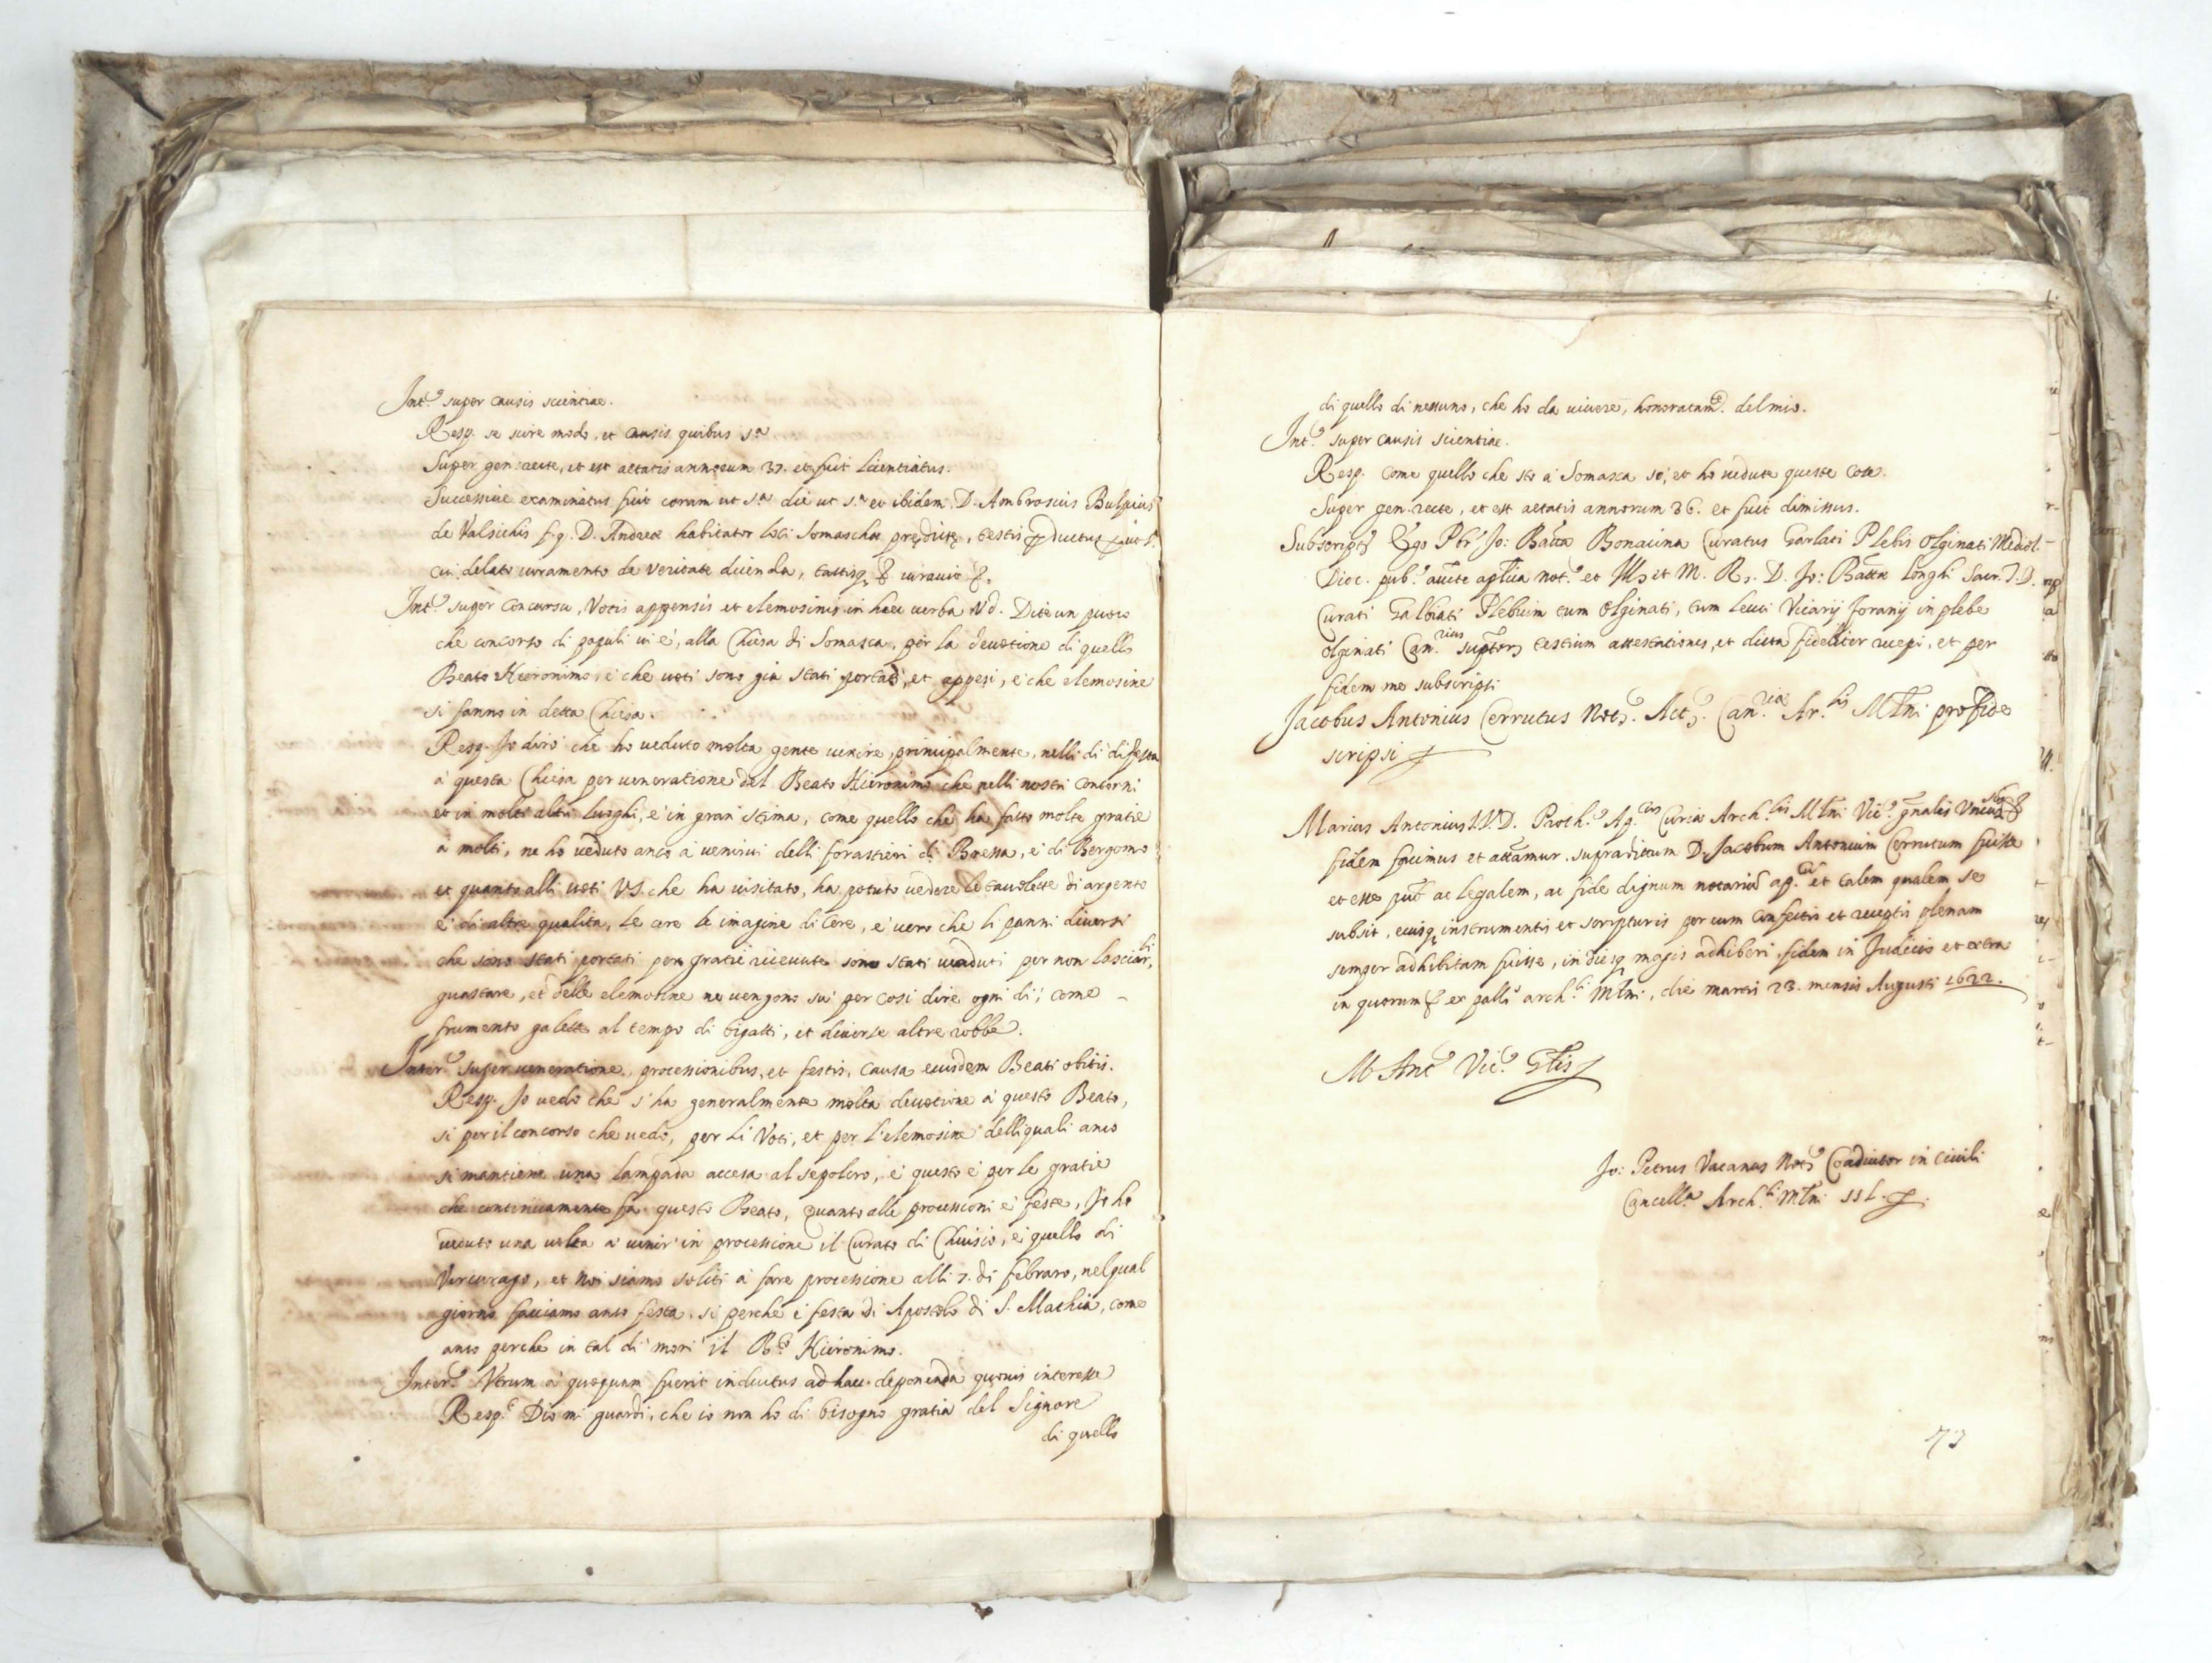 Int.º super causis scientiae.
Resp. se scire modo, et causis quibus s.ª
Super gen. recte, et est aetatis annorum 37. et fuit licentiatus.
Successive examinatus fuit coram ut s.ª die ut s.ª et ibidem D. Ambrosius Bulpius
de Valsichis f. q. D. Andreae habitator loci Somaschae predicte, testis
cui delato iuramento de veritate dicenda, tactisq. & iuravit &.
Int.º super concursu, Votis appensis et elemosinis in haec verba Vd. Dite un puoco
che concorso di populi vi è, alla Chiesa di Somasca, per la devotione di quello
Beato Hieronimo, e che voti sono già stati portati, et appesi, e che elemosine
si fanno in detta Chiesa.
Resp. Io dirò che ho veduto molta gente venire, principalmente, nelli dì di festa
à questa Chiesa per veneratione del Beato Hieronimo che nelli nostri contorni
et in molti altri luoghi, è in gran stima, come quello che ha fatto molte gratie
à molti, ne ho veduto anco à venirvi delli forastieri di Bressa, e di Bergomo
et quanto alli voti VS. che ha visitato, ha potuto vedere le tavolette di argento
e di altre qualita, le cere le imagine di Cere, e vero che li panni diversi
che sono stati portati per gratie ricevute sono stati venduti per non lasciarli,
guastare, et delle elemosine ne vengono su per cosi dire ogni dì, come
frumento galette al tempo di bigatti, et diverse altre robbe.
Inter.º super veneratione, processionibus, et festis, causa eiusdem Beati obitis.
Resp. Io vedo che s'ha generalmente molta devotione à questo Beato,
si per il concorso che vedo, per li Voti, et per l'elemosine delli quali anco
si mantiene una lampada accesa al sepolcro, e questo è per le gratie
che continuamente fa questo Beato, quanto alle processioni e feste, Io ho
veduto una volta à venir in processione il Curato di Chiusio, e quello di
Vercurago, et noi siamo soliti à fare processione alli 7. di febraro, nel qual
giorno facciamo anco festa, si perche è festa di Apostolo di S. Mathia, come
anco perche in tal dì morì il B.º Hieronimo.
Inter.º Utrum à quoquam fuerit inductus ad haec deponenda quovis interesse
Resp.º Dio mi guardi, che io non ho di bisogno gratia del Signore
di quello
di quello di nessuno, che ho da vivere, honoratam.e del mio.
Int.º super causis scientiae.
Resp. Come quello che sto à Somasca sò, et ho vedute queste cose.
Super gen. recte, et est aetatis annorum 36. et fuit dimissus.
Subscript. Ego Pbr Jo: Batta Bonacina Curatus Garlati Plebis Olginati Mediol.
Dioc. pub.º aucte aplica not.º et Ill. et M. R. D. Jo: Battae Longhi Sacr. T. D.
Curati Galbiati Plebium tum Olginati, tum Leuci Vicarij foranij in plebe
Olginati Can.rius supter testium attestationes, et dicta fideliter recepi, et per
fidem me subscripsi
Jacobus Antonius Cerrutus Not. Act. Can.riae Ar.lis Mlni pro fide
scripsi
Marius Antonius I.V.D. Proth.º Ap.cus Curia Arch.lis Mlni Vic.º gnalis &
fidem facimus et attamur supradictum D. Jacobum Antonium Cerrutum fuisse
et esse pub ac legalem, ac fide dignum notariū ap.cū et talem qualem se
subsit, eiusq. instrumentis et scripturis per eum confectis et receptis plenam
semper adhibitam fuisse, in diesq. magis adhiberi, fidem in Judicio et extra
in quorum & ex pallo arch.li Mlni, die martis 23. mensis Augusti 1622.
M Ant.º Vic.º Glis
Jo: Petrus Vacanus Not. Coadiutor in Civili
Cancell.ª Arch.li Mlni ss